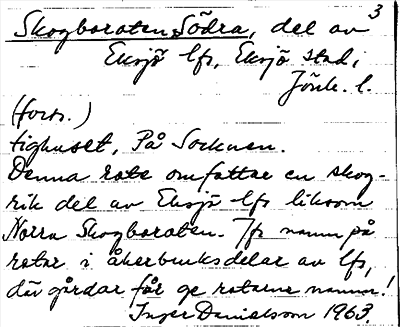 3
Skogboroten Södra, del av
Eksjö lfs, Eksjö stad,
Jönk. l.
(forts.)
tighuset, På Socknen.
Denna rote omfattar en skog-
rik del av Eksjö lfs liksom
Norra Skogboroten. Jfr namn på
rotar i åkerbruksdelar av lfs,
där gårdar får ge rotarne namn!
Inger Danielsson 1963.